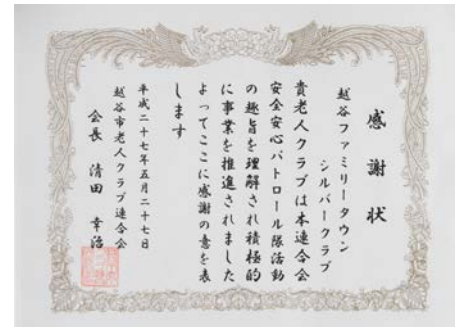 感謝状
越谷ファミリータウン
シルバークラブ
貴老人クラブは本連合会
安全安心パトロール隊活動
の趣旨を理解され積極的
に事業を推進されました
よってここに感謝の意を表
します
平成二十七年五月二十七日
越谷市老人クラブ連合会
会長 清田 幸治